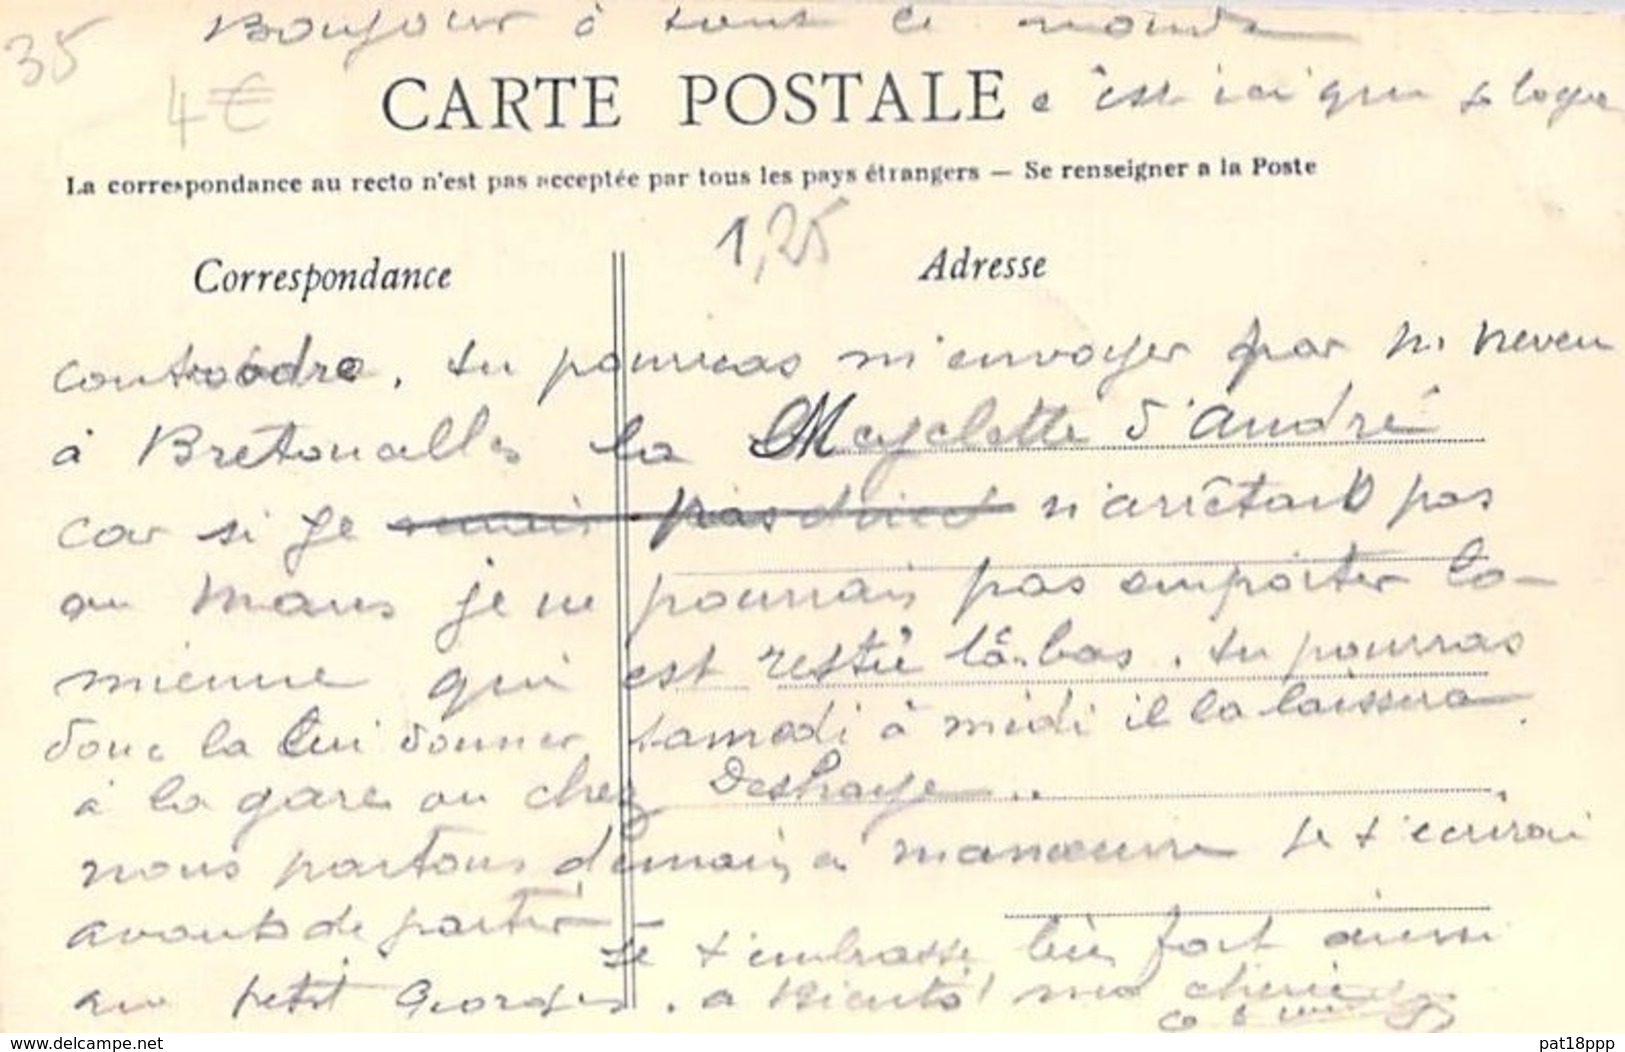 Bonjour à tout le monde
35
4€
CARTE POSTALE c'est ici que je loge
La correspondance au recto n'est pas acceptée par tous les pays étrangers — Se renseigner a la Poste
1,25
Correspondance
Adresse
contraordre, tu pourras m'envoyer par M. Neveu
à Bretoncelles la Mcyclette d'André
car si je pas direct n'arrêtait pas
au Mans je ne pourrais pas emporter la
mienne qui est restée là-bas. tu pourras
donc la lui donner samedi à midi il la laissera
à la gare ou chez Deshaye
nous partons demain en manœuvre je t'écrirai
avant de partir
Je t'embrasse bien fort ainsi
au petit Georges. a bientôt ma chérie
www.delcampe.net
pat18ppp